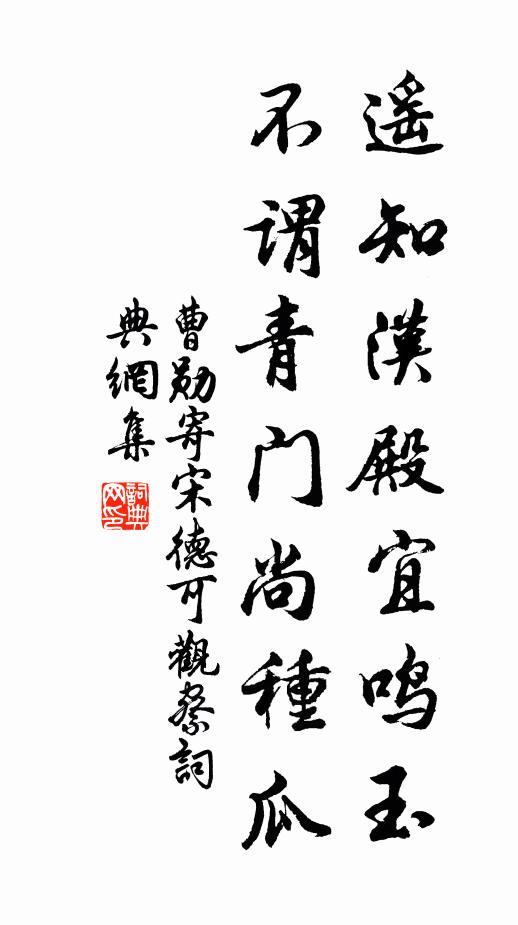 遥知漢殿宜鸣玉
不謂青门尚種瓜
曹勛寄宋德可觀察詞
典網集
詞典
网印